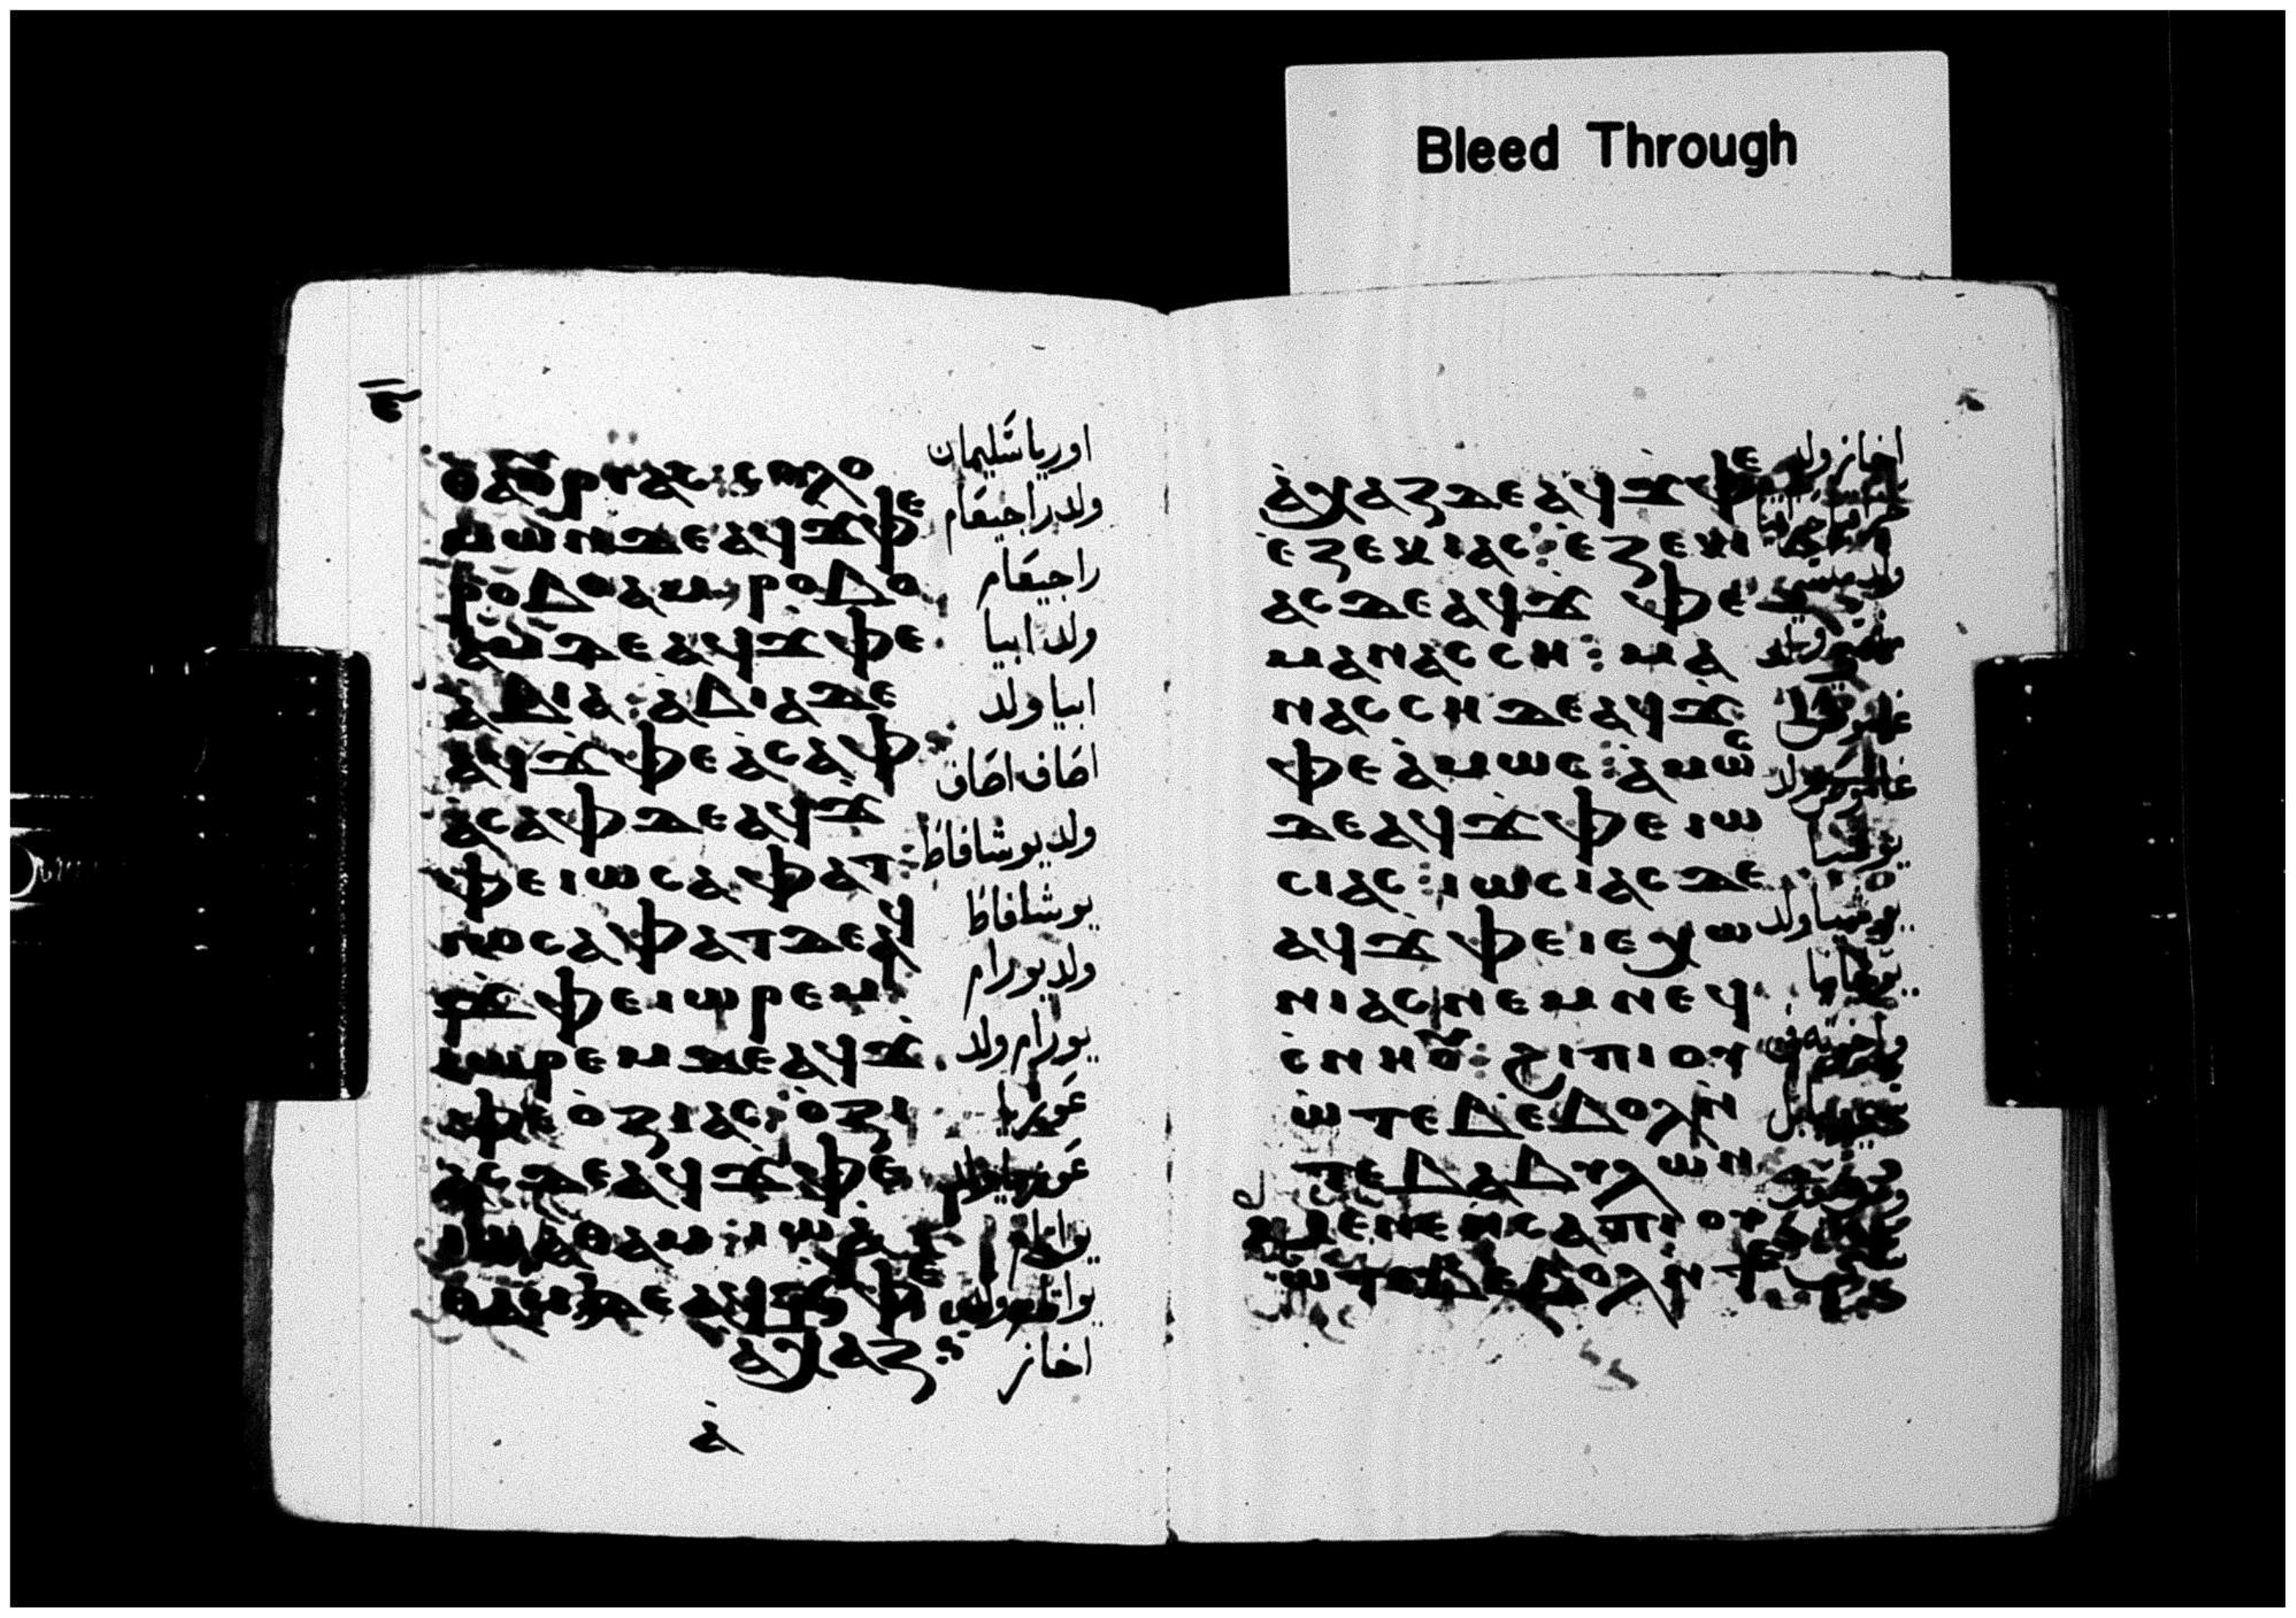 ⲉ̄
ⲑⲁⲟⲩⲣⲓⲁⲥ: ⲥⲟⲗⲟ
ⲙⲱⲛ ⲇⲉ ⲁϥϫⲫⲉ
ⲣⲟⲃⲟⲁⲙ: ⲣⲟⲃⲟ
ⲁⲙ ⲇⲉ ⲁϥϫⲫⲉ
ⲁⲃⲓⲁ: ⲁⲃⲓⲁ ⲇⲉ
ⲁϥϫⲫⲉ ⲁⲥⲁⲫ:
ⲁⲥⲁⲫ ⲇⲉ ⲁϥϫ
ⲫⲉ ⲓⲱⲥⲁⲫⲁⲧ:
ⲓⲟⲥⲁⲫⲁⲧ ⲇⲉ ⲁϥ
ϫⲫⲉ ⲓⲱⲣⲉⲙ
ⲓⲱⲣⲉⲙ ⲇⲉ ⲁϥϫ
ⲫⲉ ⲟⲍⲓⲁⲥ: ⲟⲍⲓ
ⲁⲥ ⲇⲉ ⲁϥϫⲫⲉ
ⲓⲱⲁⲑⲁⲙ: ⲓⲱⲁ
ⲑⲁⲙ ⲇⲉ ⲁϥϫⲫⲉ
ⲁⲭⲁⲍ:
ⲁ̀
اوريا سليمان
ولد راجيعام
راجيعام
ولد ابيا
ابيا ولد
اصاف اصاف
ولد يوشافاط
يوشافاط
ولد يورام
يورام ولد
عوزيا
عوزيا ولد
يواثام
يواثام ولد
اخاز
ⲁⲭⲁⲍ ⲇⲉ ⲁϥϫⲫⲉ
ⲉⲍⲉⲕⲓⲁⲥ: ⲉⲍⲉⲕⲓ
ⲁⲥ ⲇⲉ ⲁϥϫ ⲫⲉ
ⲙⲁⲛⲁⲥⲥⲏ: ⲙⲁ
ⲛⲁⲥⲥⲏ ⲇⲉ ⲁϥϫ
ⲫⲉ ⲁⲙⲱⲥ: ⲁⲙⲱⲥ
ⲇⲉ ⲁϥϫⲫⲉ ⲓⲱ
ⲥⲓⲁⲥ: ⲓⲱⲥⲓⲁⲥ ⲇⲉ
ⲁϥϫⲫⲉ ⲓⲉⲭⲱ
ⲛⲓⲁⲥ ⲛⲉⲙ ⲛⲉϥ
ⲥⲛⲏⲟⲩ: ϩⲓ ⲡⲓⲟⲩ
ⲱⲧⲉⲃ ⲉⲃⲟⲗ ⲛ
ⲧⲉ ⲃⲁⲃⲩⲗⲱⲛ
ⲙⲉⲛⲉⲛⲥⲁ ⲡⲓⲟⲩ
ⲱⲧⲉⲃ ⲉⲃⲟⲗ ⲛⲧⲉ
اخاز ولد
ولد منسى
يوشيا
يوشيا ولد
Bleed Through